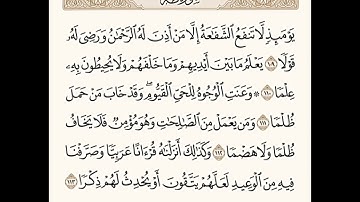 يَوْمَئِذٍ لَّا تَنفَعُ الشَّفَاعَةُ إِلَّا مَنْ أَذِنَ لَهُ الرَّحْمَٰنُ وَرَضِيَ لَهُ
قَوْلًا ١٠٩ يَعْلَمُ مَا بَيْنَ أَيْدِيهِمْ وَمَا خَلْفَهُمْ وَلَا يُحِيطُونَ بِهِ
عِلْمًا ١١٠ ۞ وَعَنَتِ الْوُجُوهُ لِلْحَيِّ الْقَيُّومِ ۖ وَقَدْ خَابَ مَنْ حَمَلَ
ظُلْمًا ١١١ وَمَن يَعْمَلْ مِنَ الصَّالِحَاتِ وَهُوَ مُؤْمِنٌ فَلَا يَخَافُ
ظُلْمًا وَلَا هَضْمًا ١١٢ وَكَذَٰلِكَ أَنزَلْنَاهُ قُرْآنًا عَرَبِيًّا وَصَرَّفْنَا
فِيهِ مِنَ الْوَعِيدِ لَعَلَّهُمْ يَتَّقُونَ أَوْ يُحْدِثُ لَهُمْ ذِكْرًا ١١٣